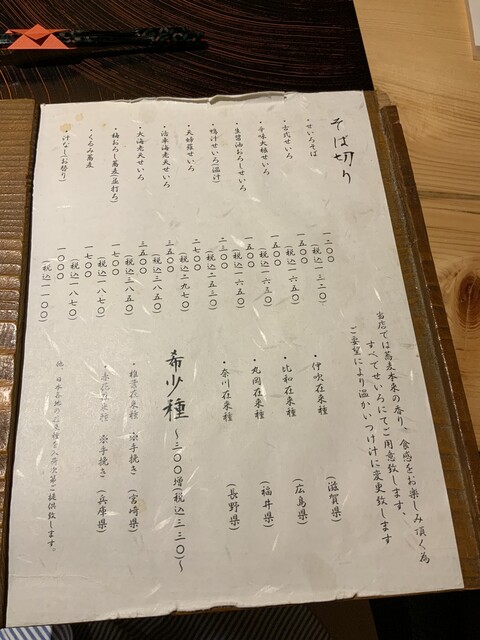 そば切り
・せいろそば 一二〇〇
(税込一三二〇)
・古式せいろ 一五〇〇
(税込一六五〇)
・辛味大根せいろ 一五〇〇
(税込一六五〇)
・生醬油おろしせいろ 一五〇〇
(税込一六五〇)
・鴨汁せいろ(温汁) 二三〇〇
(税込二五三〇)
・天婦羅せいろ 二七〇〇
(税込二九七〇)
・活車海老天せいろ 三五〇〇
(税込三八五〇)
・大海老天せいろ 三五〇〇
(税込三八五〇)
・梅おろし蕎麦(並打ろ) 一七〇〇
(税込一八七〇)
・くるみ蕎麦 一七〇〇
(税込一八七〇)
・汁なし(お替り) 一〇〇〇
(税込一一〇〇)
当店では蕎麦本来の香り、食感をお楽しみ頂く為
すべてせいろにてご用意致します。
ご要望により温かいつけ汁に変更致します
・伊吹在来種 (滋賀県)
・比和在来種 (広島県)
・丸岡在来種 (福井県)
・奈川在来種 (長野県)
希少種 〜三〇〇増(税込三三〇)〜
・椎葉在来種 ※手挽き (宮崎県)
・赤花在来種 ※手挽き (兵庫県)
他、日本各地の在来種を入荷次第ご提供致します。